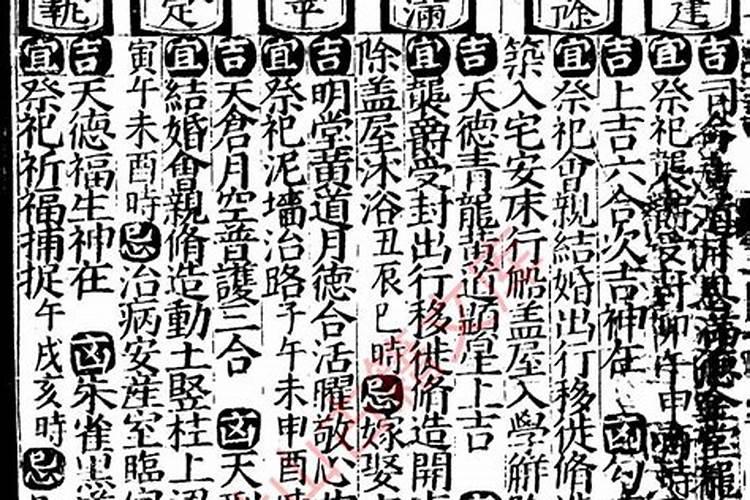 建
吉
宜祭祀襲爵受封卯午申酉時
吉上吉六合次吉神在 凶勾
除
宜祭祀會親結婚出行移徙脩造
築入宅安床行船盖屋入學
吉天德青龍黃道顯星上吉
滿
宜襲爵受封出行移徙脩造開
除盖屋沐浴丑辰巳時忌嫁娶
吉明堂黃道月德合活曜敬心
平
宜祭祀泥墻治路子午未申酉時
吉天倉月空普護三合 凶天
定
宜結婚會親脩造動土竪柱上
寅午未酉時忌治病安産室臨
吉天德福生神在 凶朱雀黑
執
宜祭祀祈福捕捉午戌亥時忌